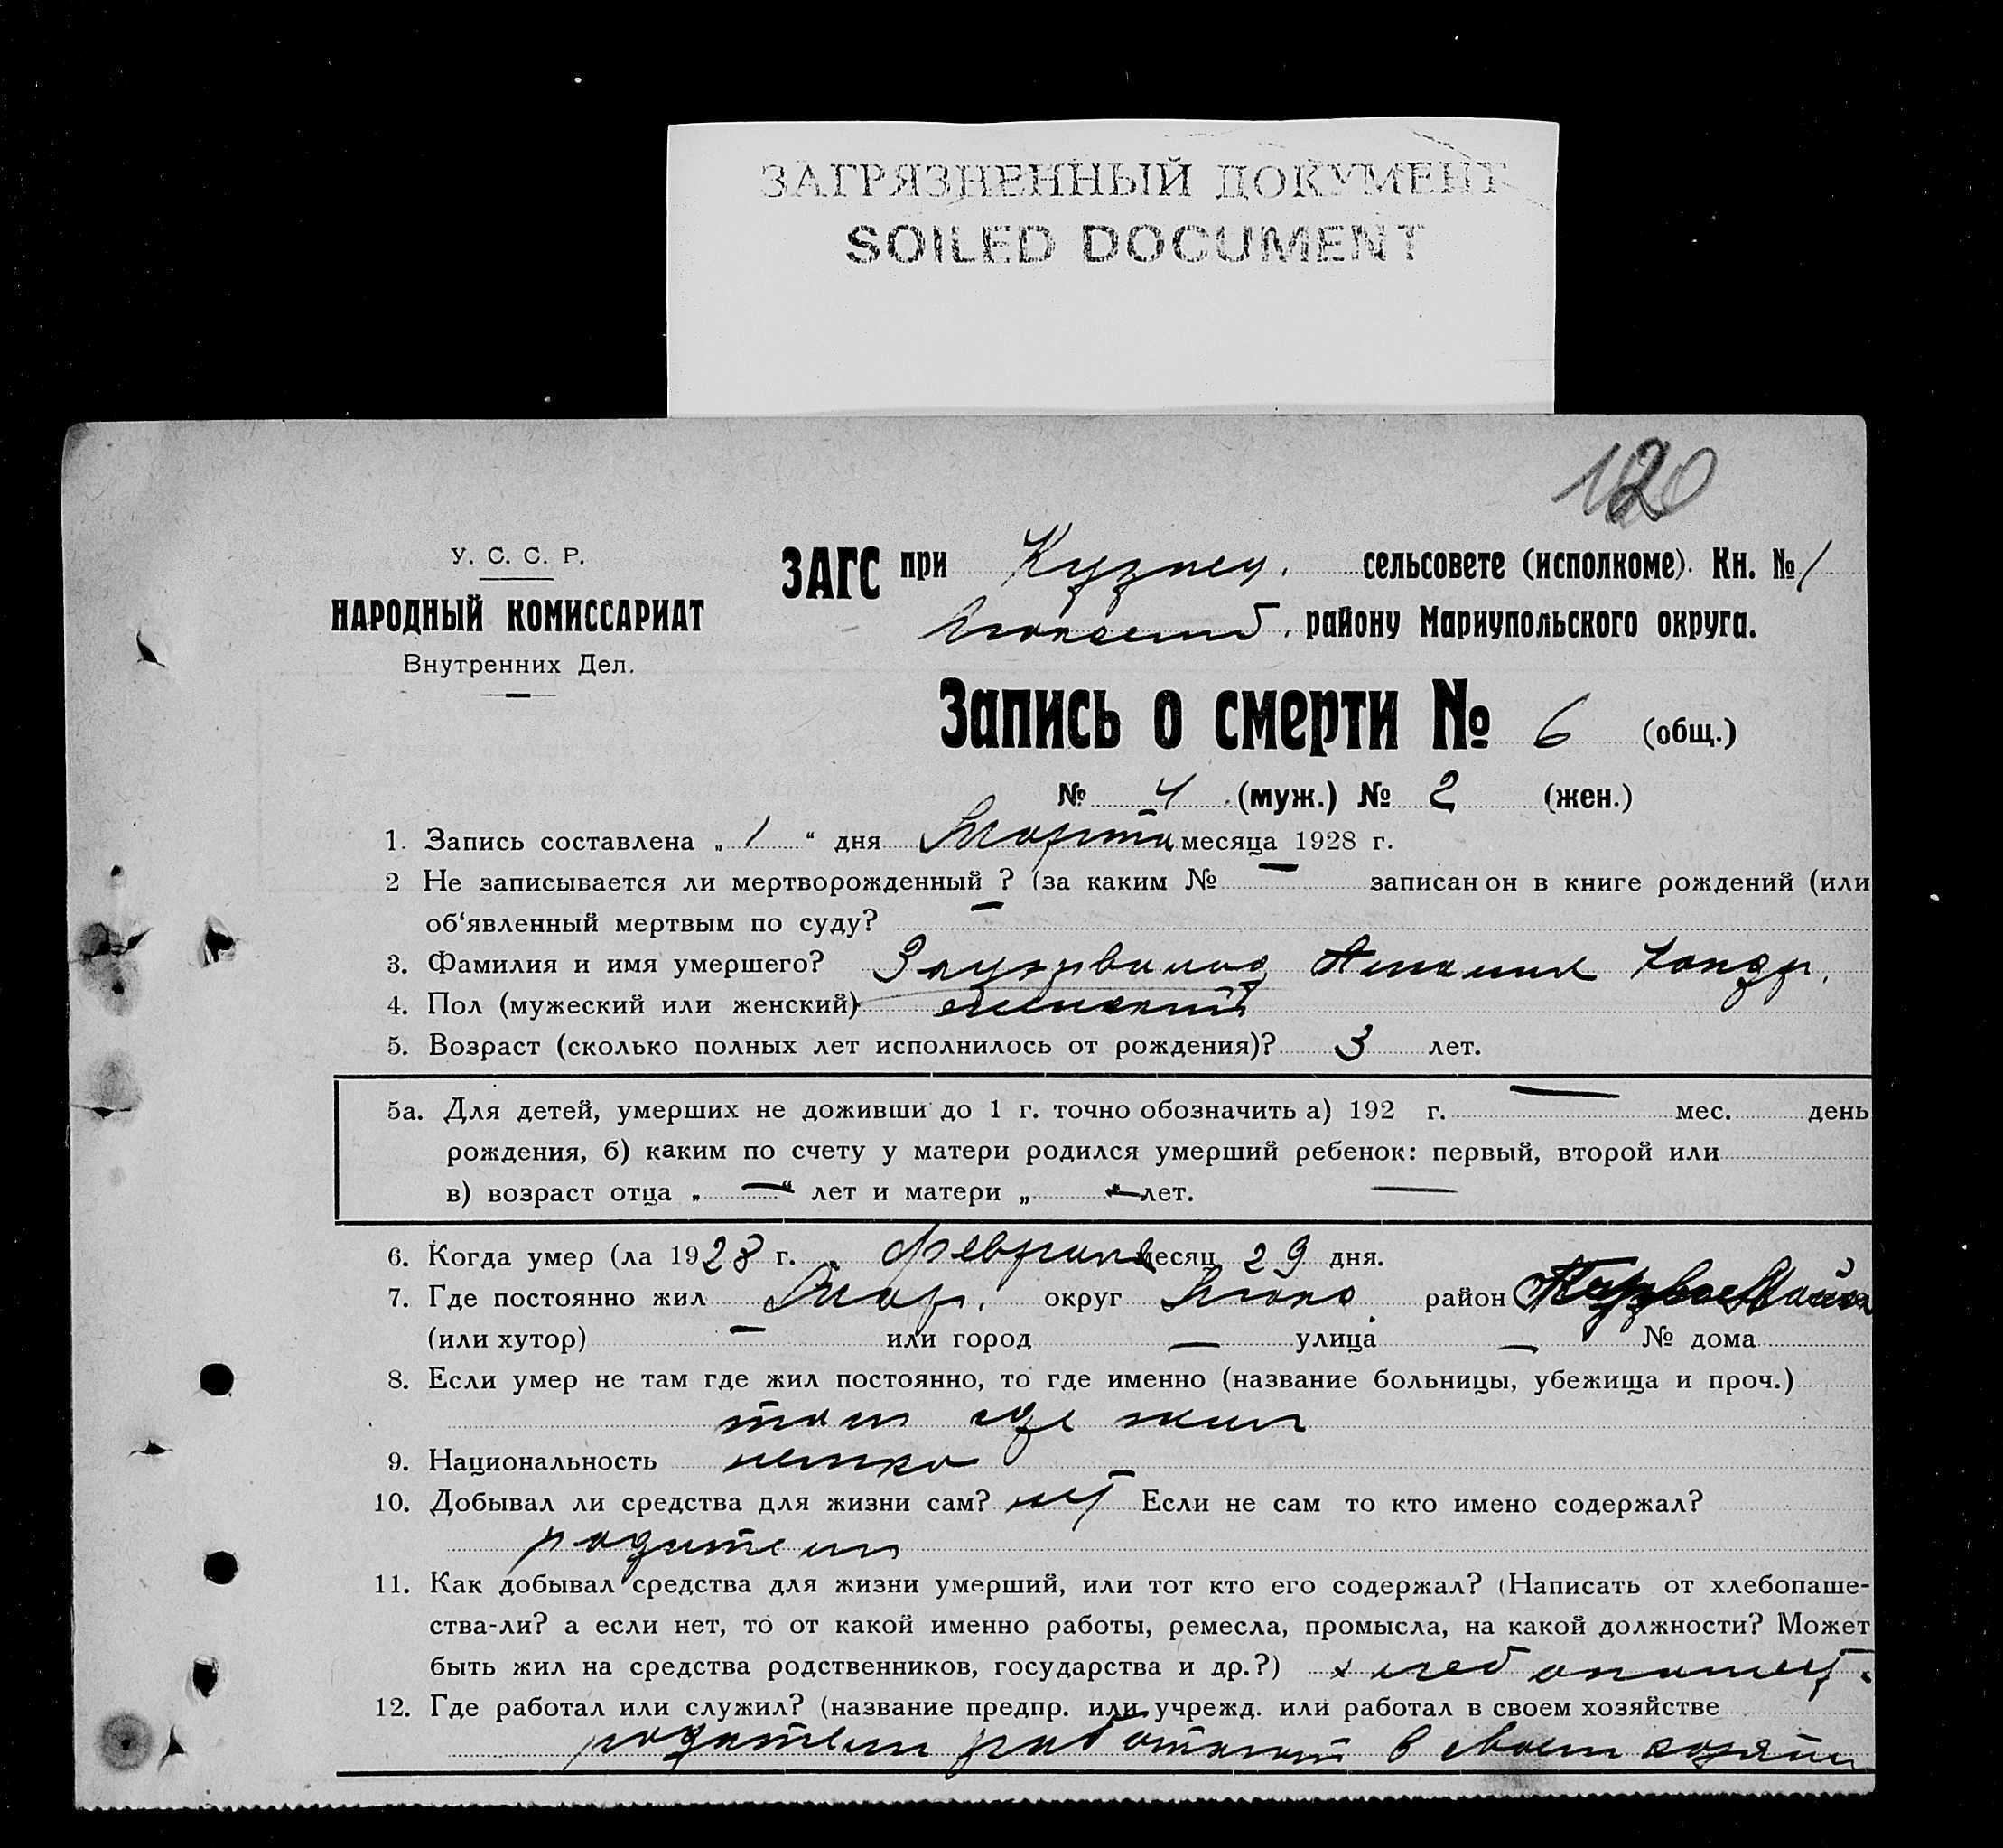 ЗАГРЯЗНЕННЫЙ ДОКУМЕНТ
SOILED DOCUMENT
120
У. С. С. Р.
НАРОДНЫЙ КОМИССАРИАТ
Внутренних Дел.
ЗАГС при Кузнец. сельсовете (исполкоме). Кн. № 1
району Мариупольского округа.
Запись о смерти № 6 (общ.)
№ 4 (муж.) № 2 (жен.)
1. Запись составлена „ 1 “ дня Марта месяца 1928 г.
2 Не записывается ли мертворожденный ? (за каким № — записан он в книге рождений (или
об‘явленный мертвым по суду? —
3. Фамилия и имя умершего?
4. Пол (мужеский или женский) женский
5. Возраст (сколько полных лет исполнилось от рождения)? 3 лет.
5а. Для детей, умерших не доживши до 1 г. точно обозначить а) 192 г. — мес. день
рождения, б) каким по счету у матери родился умерший ребенок: первый, второй или
в) возраст отца „ — “ лет и матери „ — “ лет. —
6. Когда умер (ла 1928 г. февраля месяц 29 дня.
7. Где постоянно жил Мар. округ район
(или хутор) — или город — улица — № дома
8. Если умер не там где жил постоянно, то где именно (название больницы, убежища и проч.)
там где жил
9. Национальность немка
10. Добывал ли средства для жизни сам? нет Если не сам то кто имено содержал?
родители
11. Как добывал средства для жизни умерший, или тот кто его содержал? (Написать от хлебопаше-
ства-ли? а если нет, то от какой именно работы, ремесла, промысла, на какой должности? Может
быть жил на средства родственников, государства и др.?) хлебопашест.
12. Где работал или служил? (название предпр. или учрежд. или работал в своем хозяйстве
родители работают в своем хозяйст